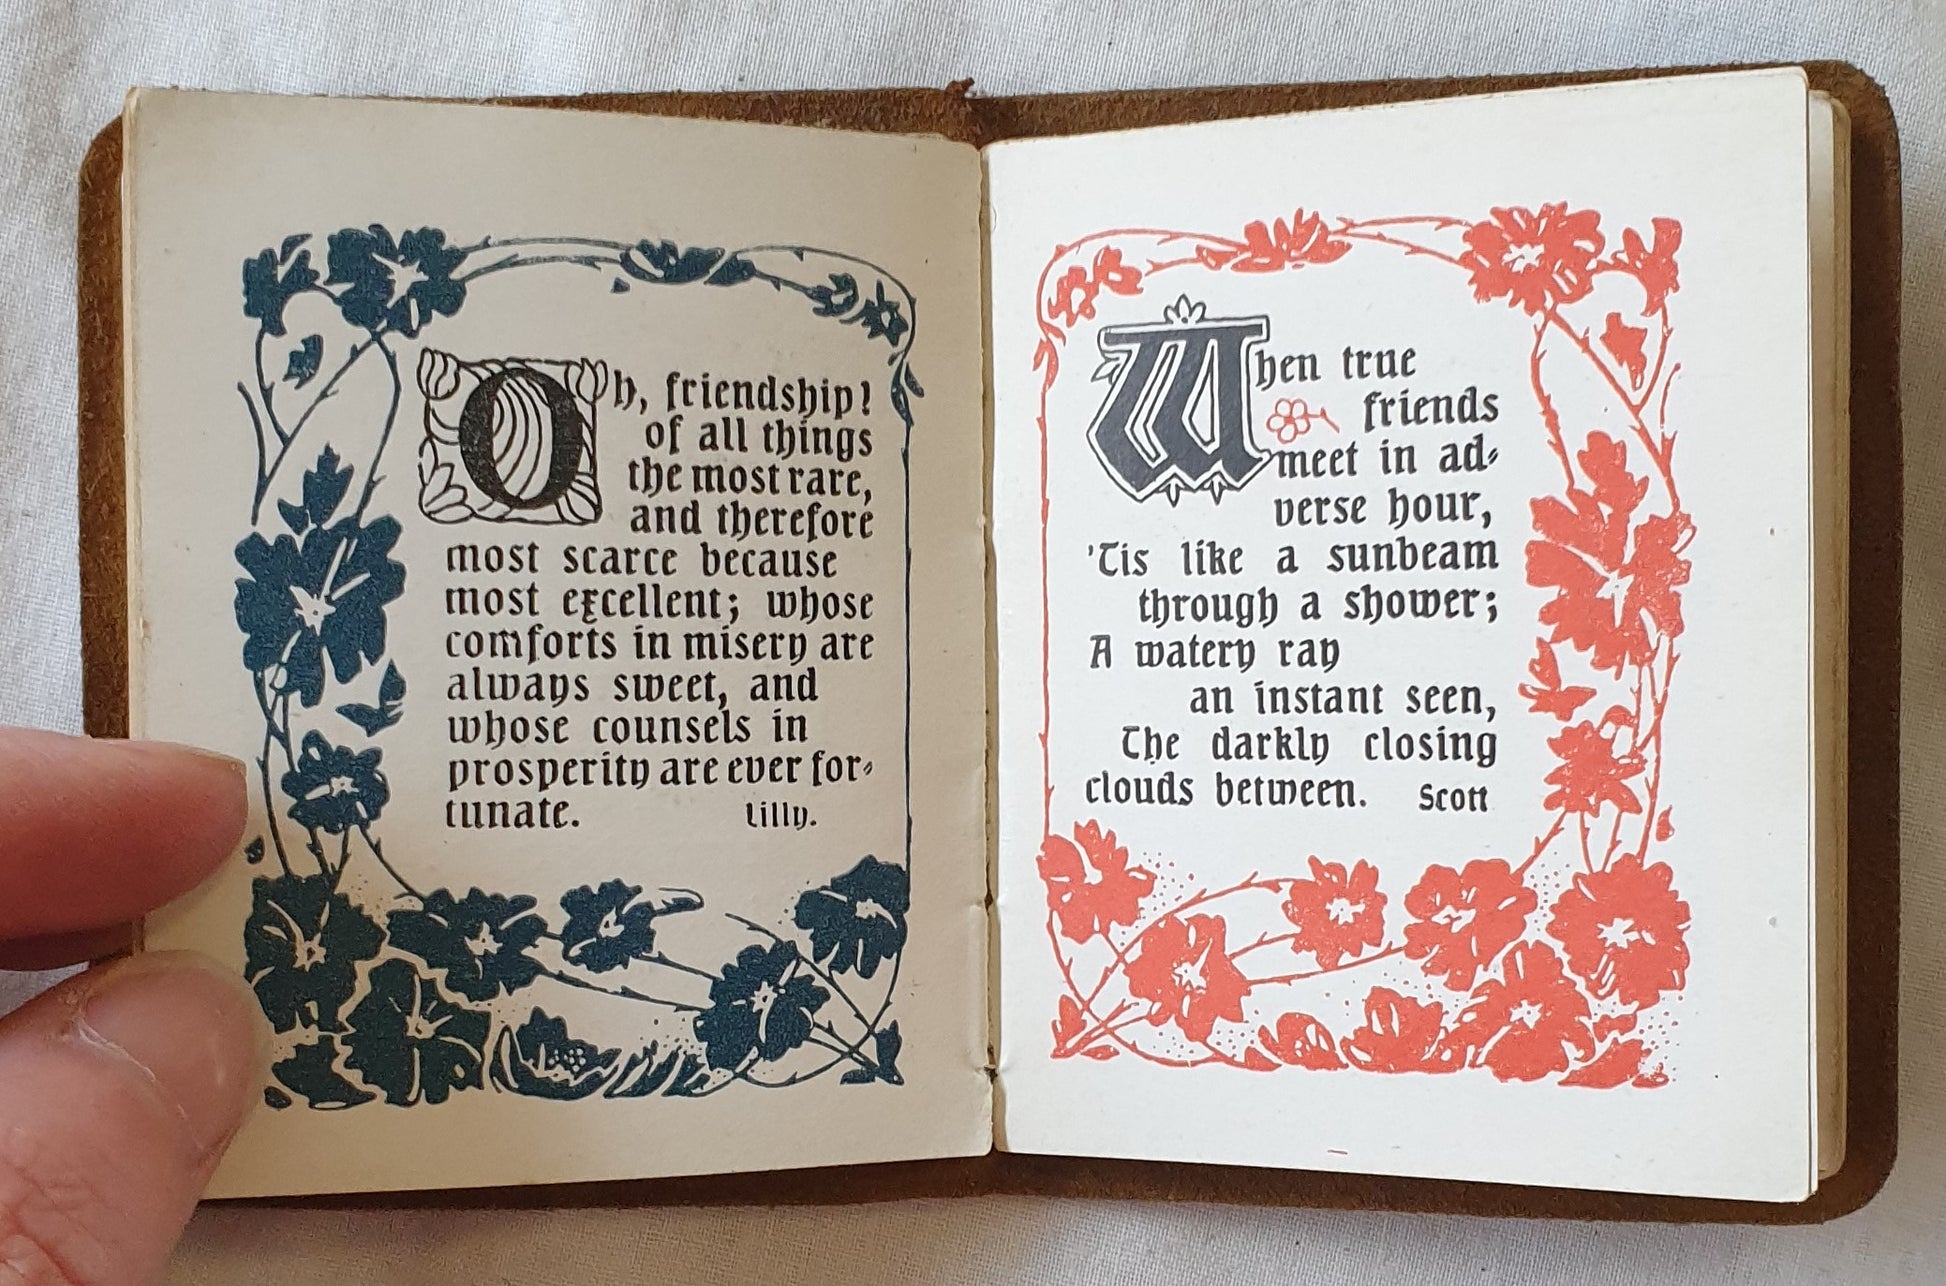 Oh, friendship!
of all things
the most rare,
and therefore
most scarce because
most excellent; whose
comforts in misery are
always sweet, and
whose counsels in
prosperity are ever for-
tunate. Lilly.
When true
friends
meet in ad-
verse hour,
'Tis like a sunbeam
through a shower;
A watery ray
an instant seen,
The darkly closing
clouds between. Scott